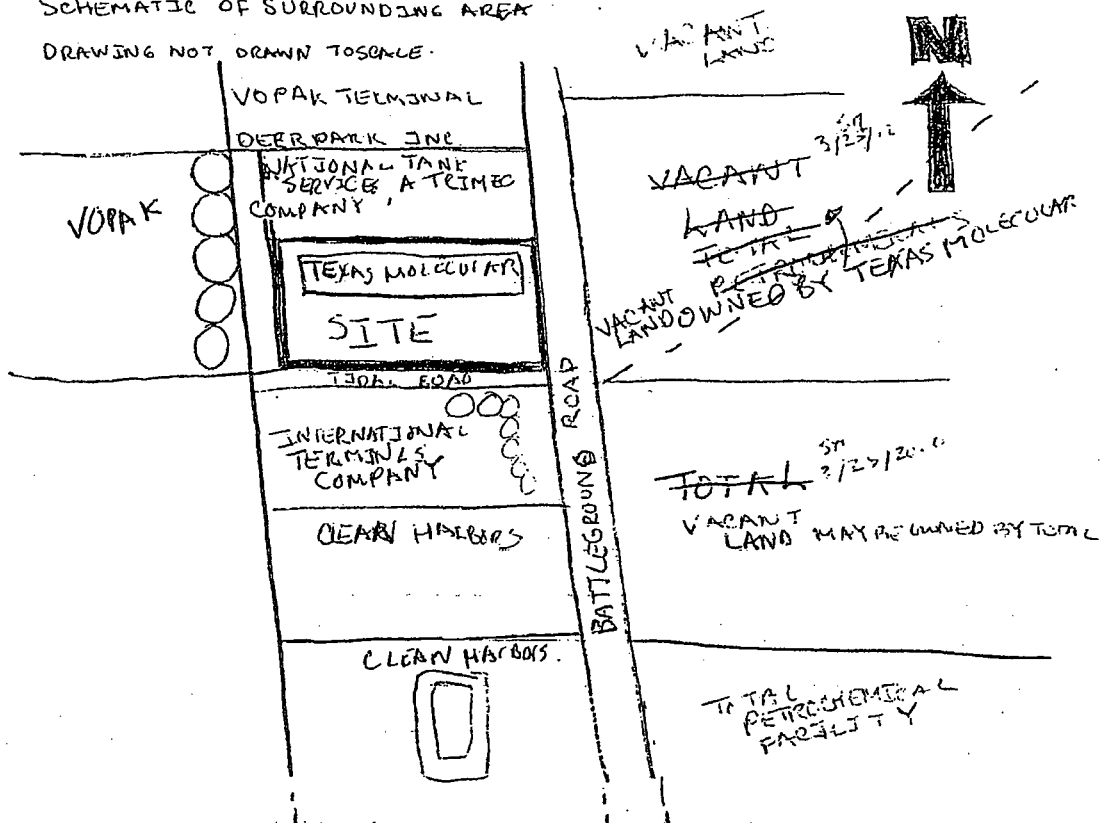 SCHEMATIC OF SURROUNDING AREA
DRAWING NOT DRAWN TOSCALE.
VACANT
LAND
N
VOPAK TERMINAL
DEERPARK INC
NATIONAL TANK
SERVICES, A TRIMEC
COMPANY,
VOPAK
TEXAS MOLECULAR
SITE
VACANT
LAND
TOTAL
PETROCHEMICALS
VACANT
LAND OWNED BY TEXAS MOLECULAR
TIDAL ROAD
INTERNATIONAL
TERMINLS
COMPANY
BATTLEGROUND ROAD
TOTAL
VACANT
LAND MAY BE OWNED BY TOTAL
CLEAN HARBORS
CLEAN HARBORS.
TOTAL
PETROCHEMICAL
FACILITY